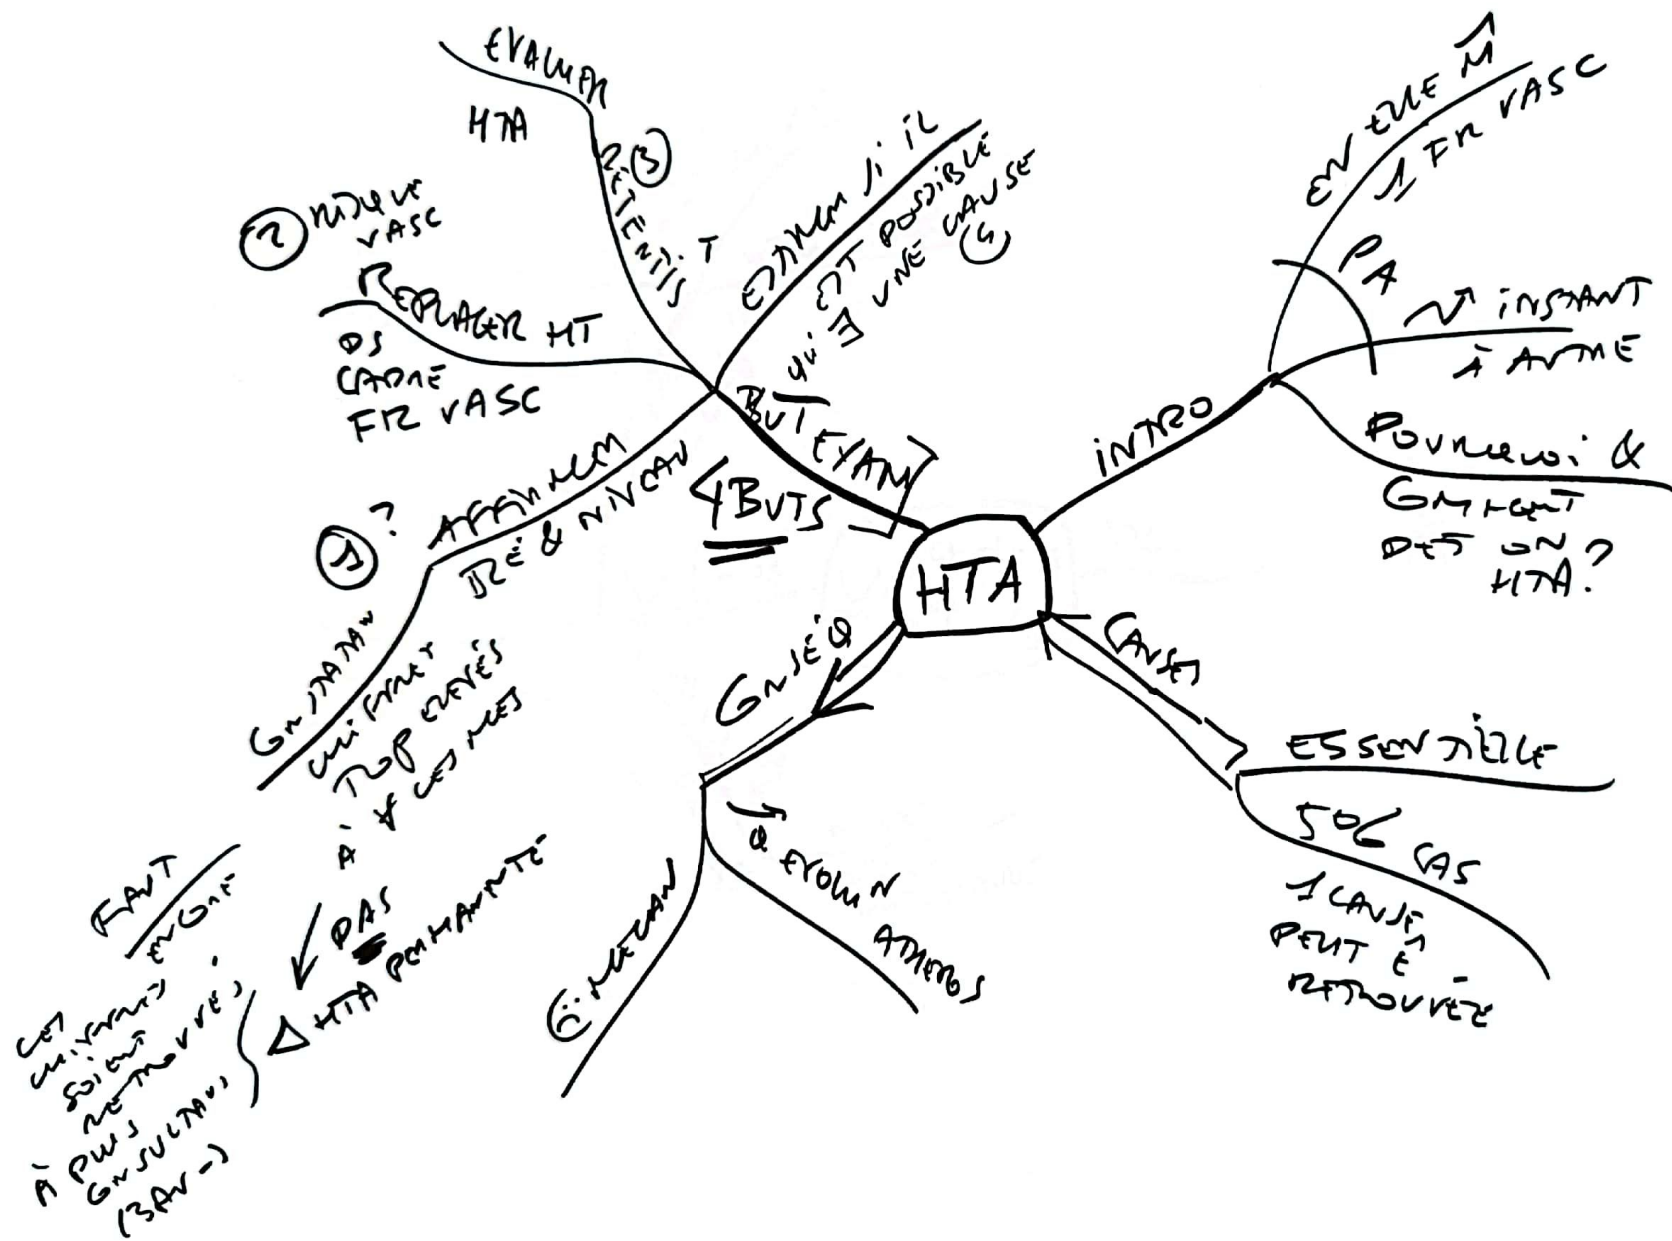 HTA
INTRO
EN ELLE M̂
1 FR VASC
PA
INSTANT
À AUTRE
POURQUOI &
COMMENT
DET ON
HTA?
CAUSES
ESSENTIELLE
5% CAS
1 CAUSE
PEUT Ê
RETROUVÉE
CONSÉQ
→
Q EVOLUN
ATHEROS
MECAN
BUT EXAM
4 BUTS
1 ?
AFFIRMER
RÉ & NIVEAU
CONSTATAN
CHIFFRES
TROP ELEVÉS
À ∀ CES MES
PAS
Δ HTA PERMANENTE
FAUT
ENCORE
CES
CHIFFRES
SOIENT
RETROUVÉS
À PLUS
CONSULTAOS
(3 AU -)
2 RISQUE
VASC
REPLACER HT
DS
CADRE
FR VASC
3
RETENTIS T
EVALUER
HTA
ESTIMER SI IL
EST POSSIBLE
QU'∃ UNE CAUSE
4